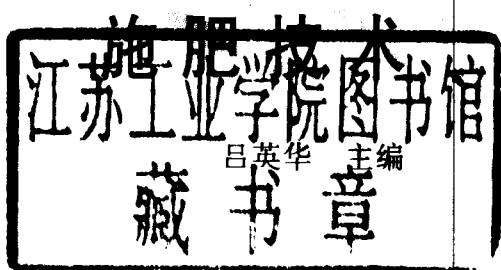 施肥技术
江苏工业学院图书馆
吕英华 主编
藏书章